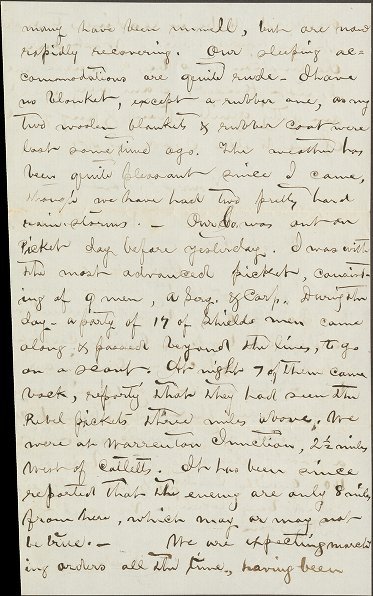 many have been unwell, but are now
rapidly recovering. Our sleeping ac-
commodations are quite rude - I have
no blanket, except a rubber one, as my
two woolen blankets & rubber coat were
lost some time ago. The weather has
been quite pleasant since I came,
though we have had two pretty hard
rain-storms. - Our Co. was out on
picket day before yesterday. I was with
the most advanced picket, consist-
ing of 9 men, a Serg. & Corp. During the
day - a party of 17 of Shields men came
along & passed beyond the lines, to go
on a scout. At night 7 of them came
back, reporting that they had seen the
Rebel pickets three miles above. We
were at Warrenton Junction, 2½ miles
west of Catletts. It has been since
reported that the enemy are only 8 miles
from here, which may or may not
be true. - We are expecting march-
ing orders all the time, having been